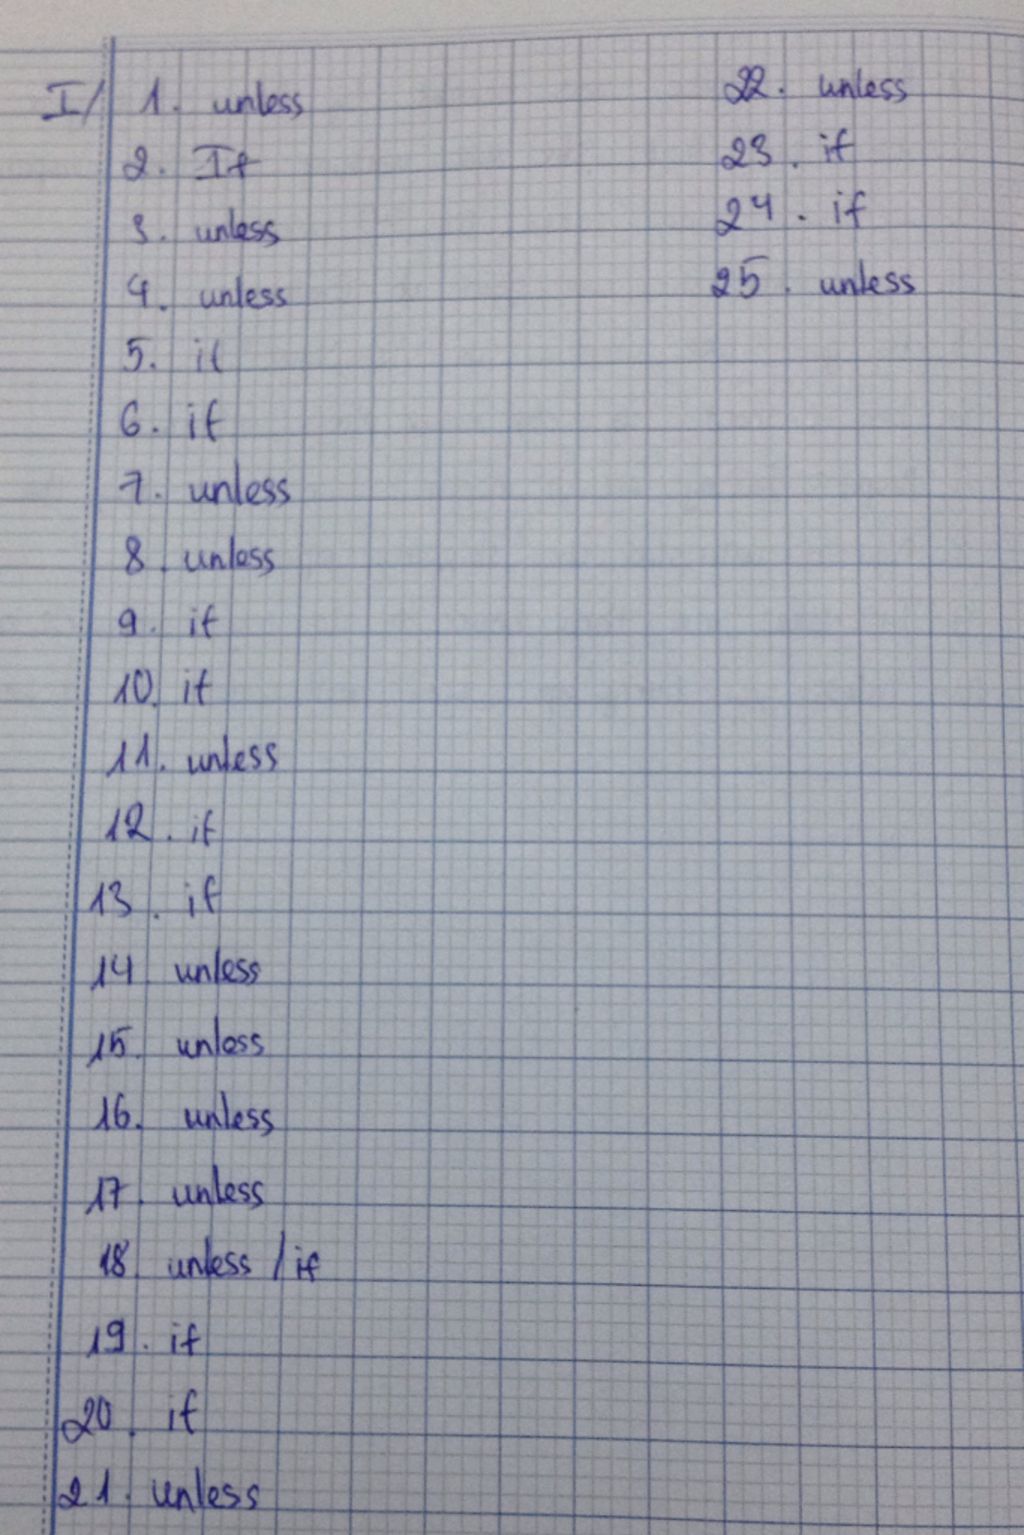 I/ 1. unless
2. If
3. unless
4. unless
5. if
6. if
7. unless
8. unless
9. if
10. if
11. unless
12. if
13. if
14. unless
15. unless
16. unless
17. unless
18. unless / if
19. if
20. if
21. unless
22. unless
23. if
24. if
25. unless